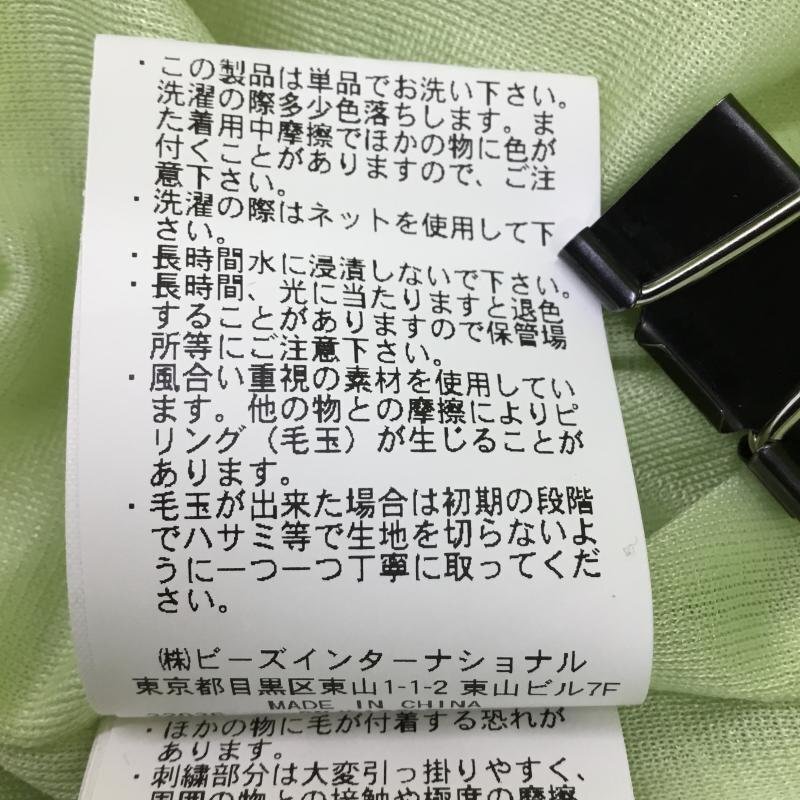 ・この製品は単品でお洗い下さい。
洗濯の際多少色落ちします。ま
た着用中摩擦でほかの物に色が
付くことがありますので、ご注
意下さい。
・洗濯の際はネットを使用して下
さい。
・長時間水に浸漬しないで下さい。
・長時間、光に当たりますと退色
することがありますので保管場
所等にご注意下さい。
・風合い重視の素材を使用してい
ます。他の物との摩擦によりピ
リング（毛玉）が生じることが
あります。
・毛玉が出来た場合は初期の段階
でハサミ等で生地を切らないよ
うに一つ一つ丁寧に取ってくだ
さい。
㈱ビーズインターナショナル
東京都目黒区東山1-1-2 東山ビル7F
MADE IN CHINA
・ほかの物に毛が付着する恐れが
あります。
・刺繍部分は大変引っ掛りやすく、
周囲の物との接触や極度の摩擦